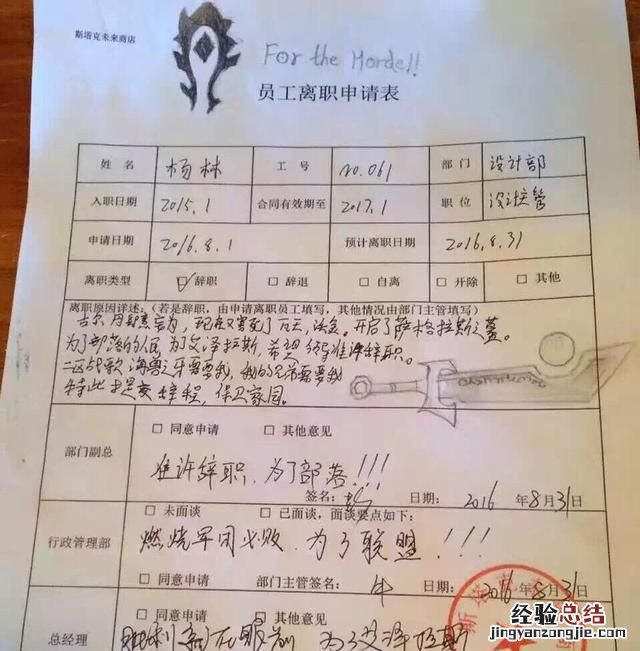 斯塔克未来商店
For the Horde!!
员工离职申请表
姓名 杨林 工号 no.061 部门 设计部
入职日期 2015.1 合同有效期至 2017.1 职位 设计主管
申请日期 2016.8.1 预计离职日期 2016.8.31
离职类型 ☑辞职 □辞退 □自离 □开除 □其他
离职原因详述:(若是辞职,由申请离职员工填写,其他情况由部门主管填写)
古尔丹 开启了萨格拉斯之墓。
为了部落的人民 为了艾泽拉斯,希望领导准许辞职。
我的兄弟需要我
特此提交辞程,保卫家园。
□ 同意申请 □ 其他意见
部门副总
准许辞职,为了部落!!!
签名: 日期: 2016 年 8 月 31 日
□ 未面谈 □ 已面谈,面谈要点如下:
行政管理部
燃烧军团必败,为了联盟!!!
□ 同意申请 部门主管签名: 日期: 2016 年 8 月 31 日
□ 同意申请 □ 其他意见
总经理
胜利就在眼前 为了艾泽拉斯
经验总结
jingyanzongjie.com